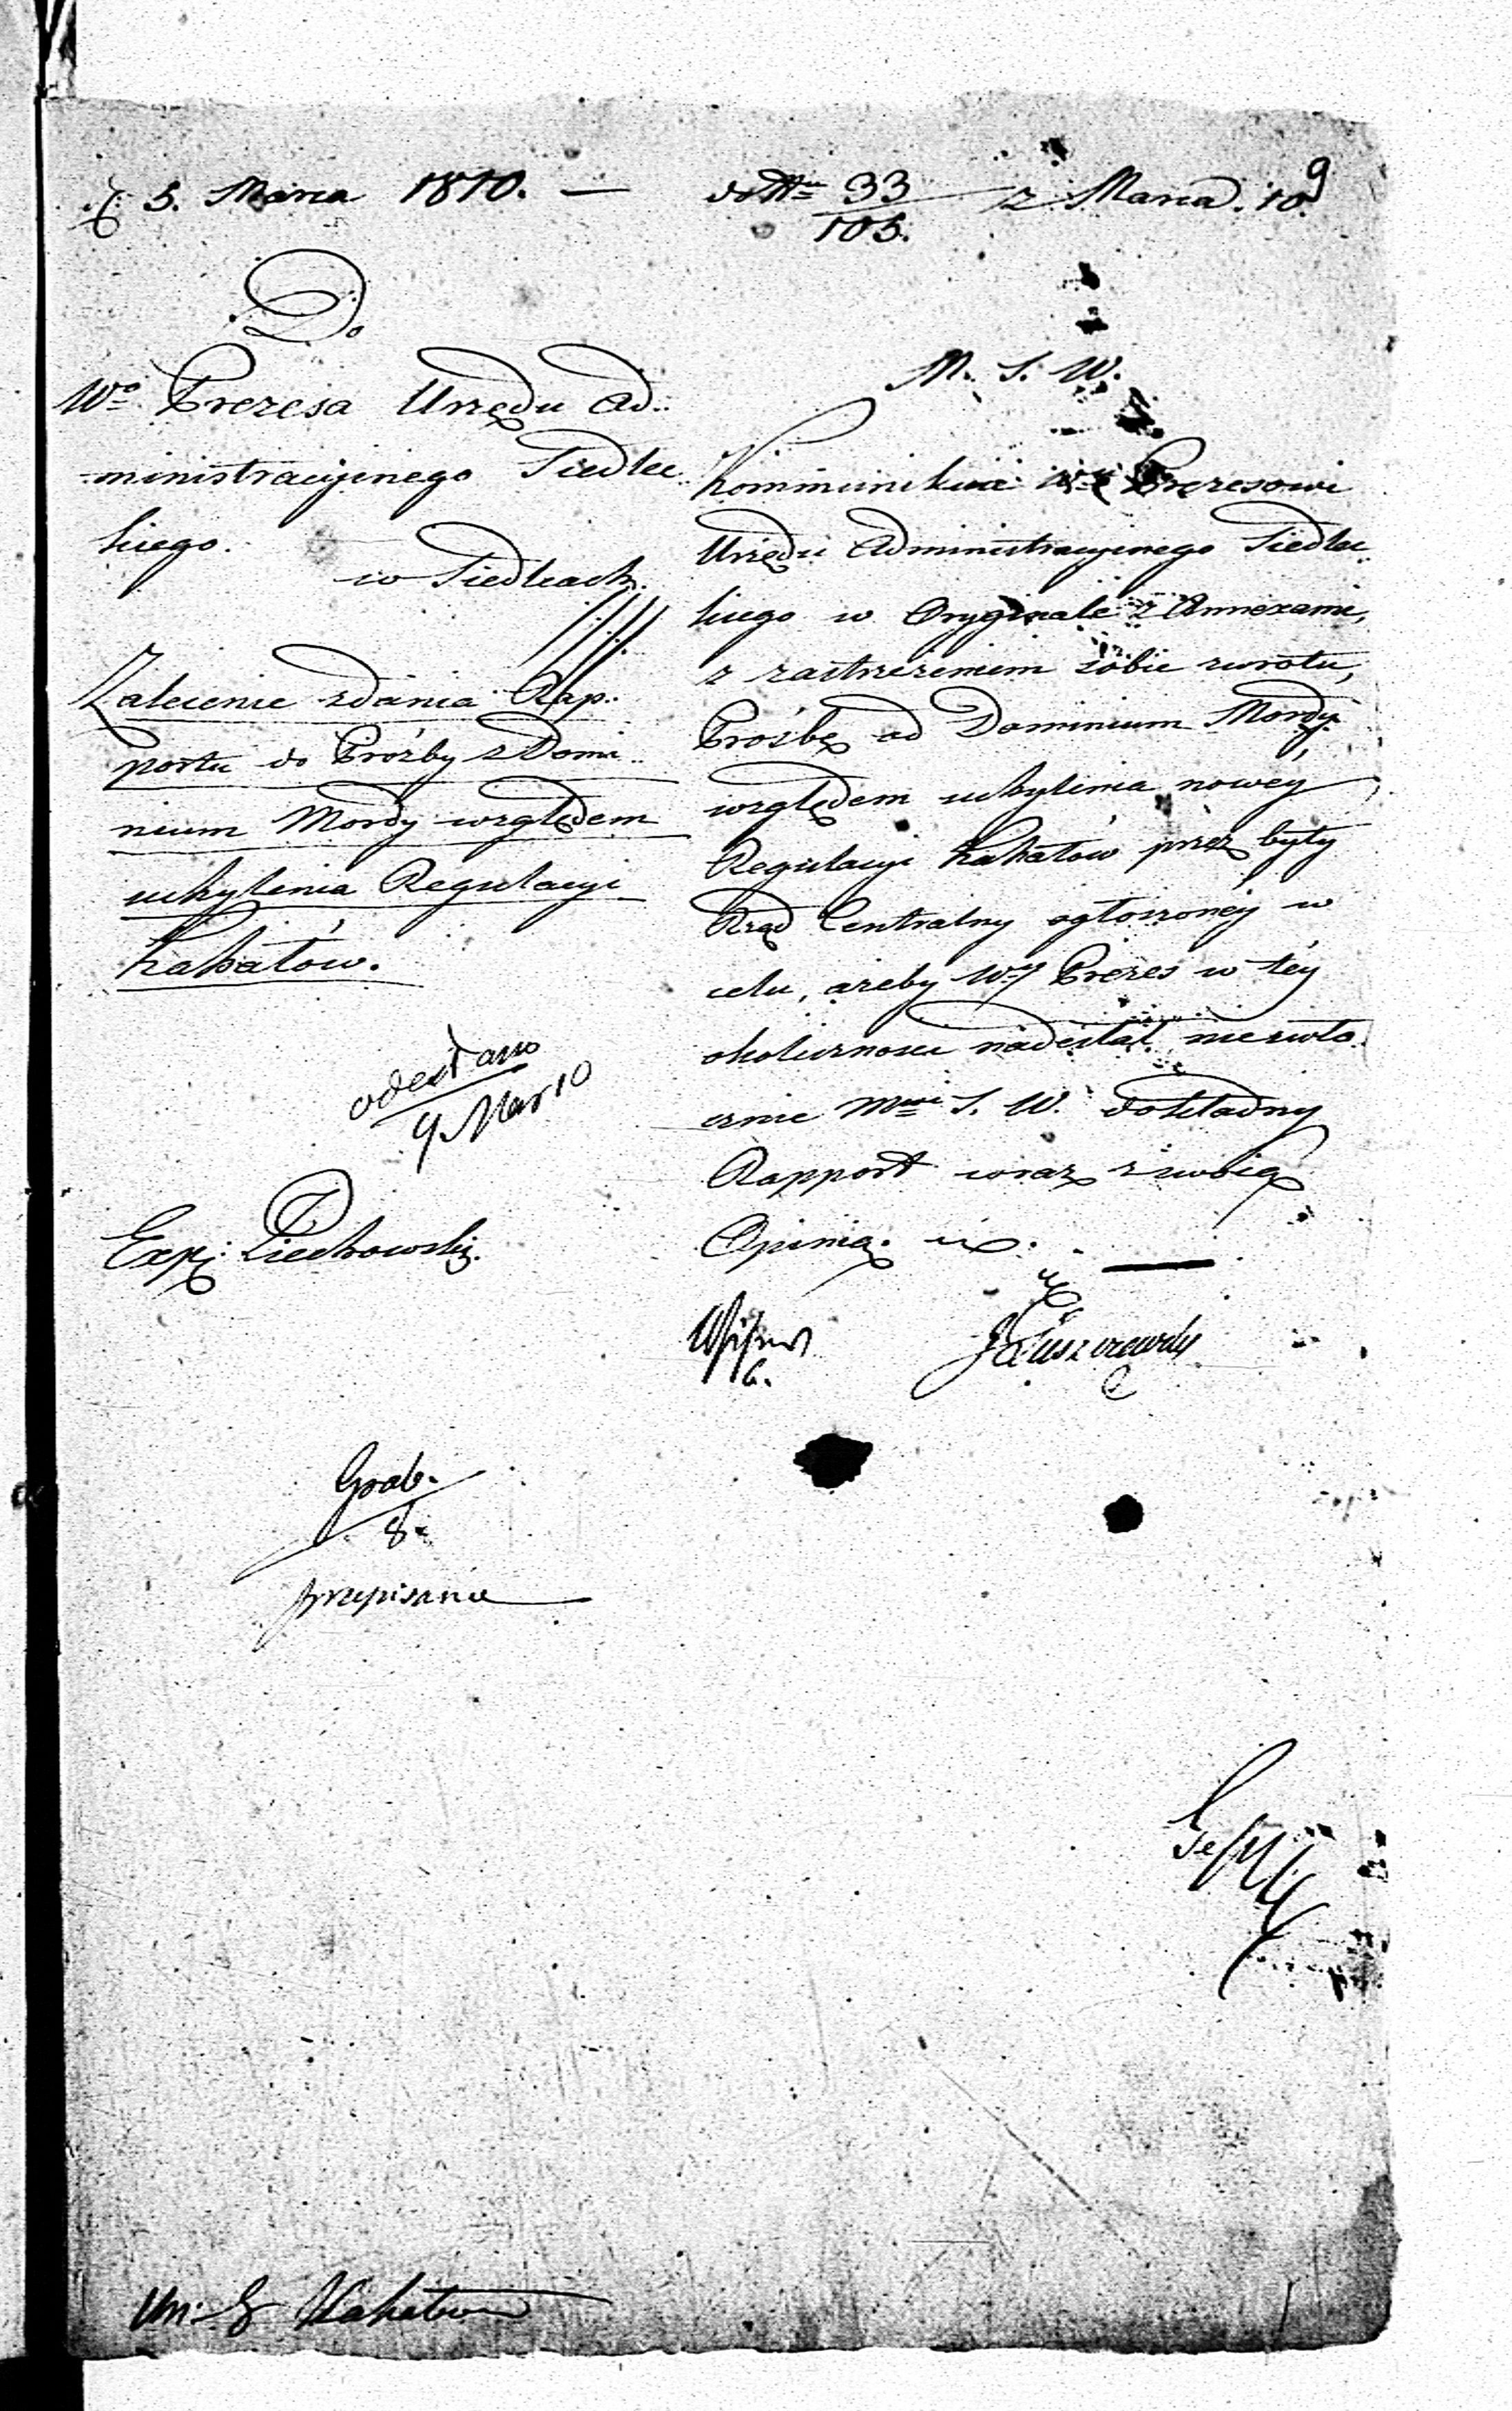 d. 5. Marca 1810. — do Nro 33/105. z Marca. 10.
9
Do
Wo Prezesa Urzędu Ad-
ministracyjnego Siedlec-
kiego.
w Siedlcach.
Zalecenie zdania Rap-
portu do Proźby z Domi-
nium Mordy względem
uchylenia Regulacyi
Kahałów.
odesłano
9 Mar 10
Exp: Piechowski.
Grab.
8
przepisane
M. S. W.
Kommunikuie Prezesowi
Urzędu Administracyjnego Siedlec-
kiego w Oryginale z Annexami,
z zastrzeżeniem sobie zwrotu,
Proźbę od Dominium Mordy,
względem uchylenia nowey
Regulacyi Kahałów przez były
Rząd Centralny ogłoszoney w
celu, ażeby Wny Prezes w tey
okoliczności nadesłał niezwło-
cznie Mwi S. W. dokładny
Rapport wraz z swoią
Opinią.
Łuszczewski
Kahałow